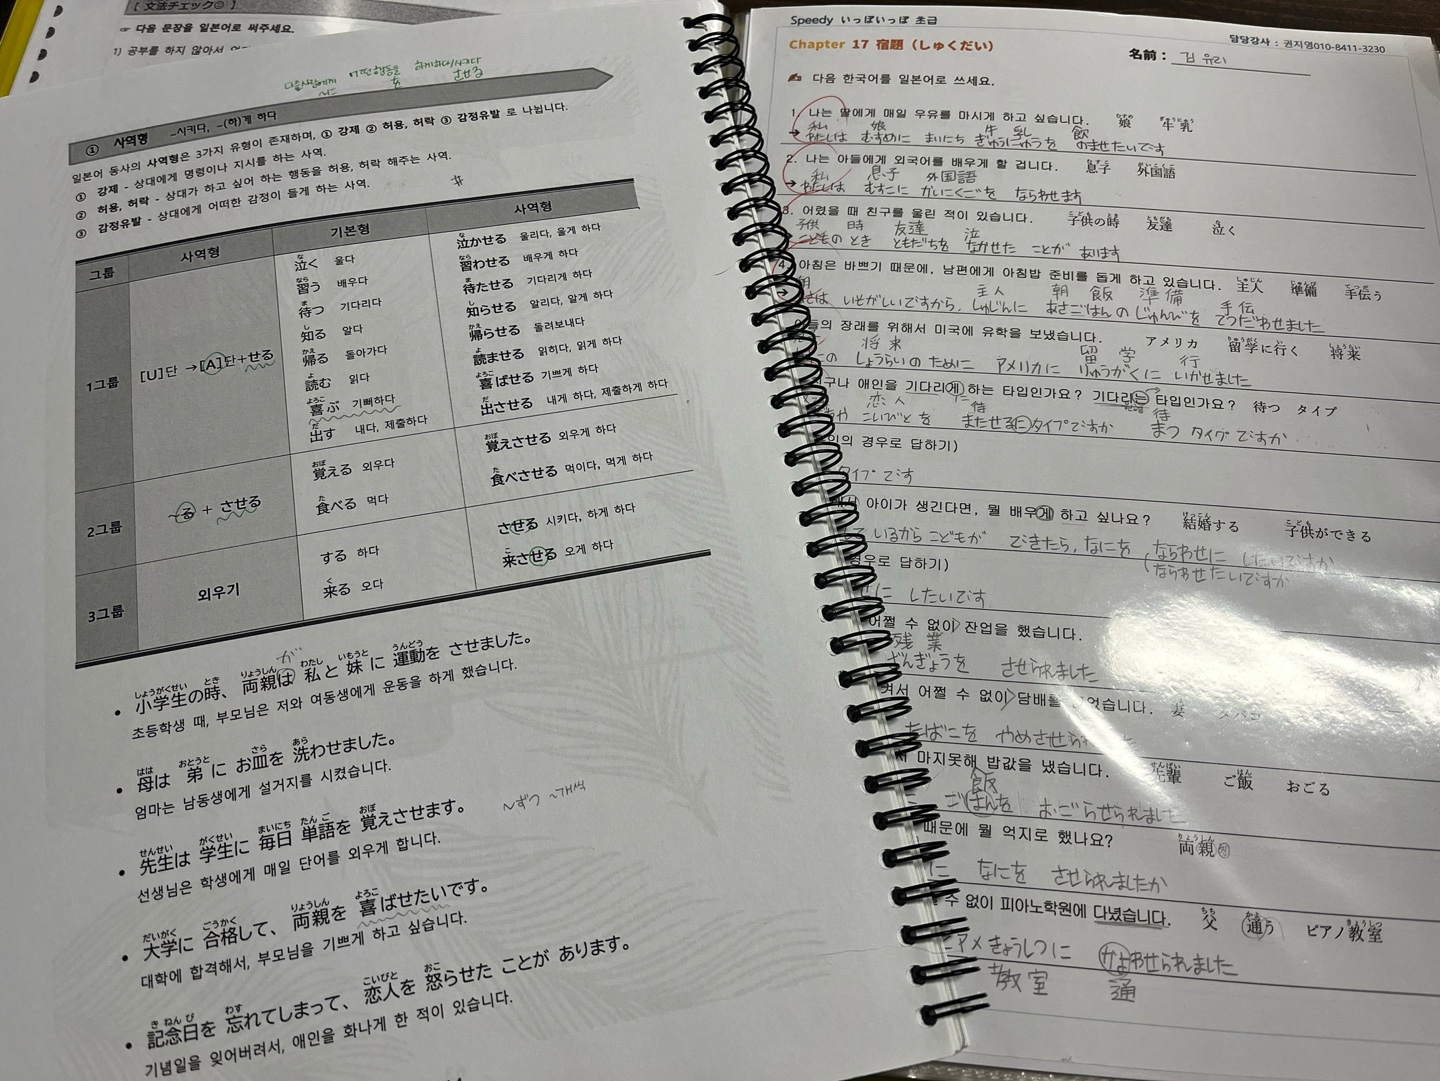 [ 文法チェック☺ ]
☞ 다음 문장을 일본어로 써주세요.
1) 공부를 하지 않아서
다른사람에게 어떤행동을 하게하다/시키다
に を させる
① 사역형 -시키다, -(하)게 하다
일본어 동사의 사역형은 3가지 유형이 존재하며, ① 강제 ② 허용, 허락 ③ 감정유발 로 나뉩니다.
① 강제 - 상대에게 명령이나 지시를 하는 사역.
② 허용, 허락 - 상대가 하고 싶어 하는 행동을 허용, 허락 해주는 사역.
③ 감정유발 - 상대에게 어떠한 감정이 들게 하는 사역.
그룹 사역형 기본형 사역형
1그룹 [U]단 →[A]단+せる
泣く 울다 泣かせる 울리다, 울게 하다
習う 배우다 習わせる 배우게 하다
待つ 기다리다 待たせる 기다리게 하다
知る 알다 知らせる 알리다, 알게 하다
帰る 돌아가다 帰らせる 돌려보내다
読む 읽다 読ませる 읽히다, 읽게 하다
喜ぶ 기뻐하다 喜ばせる 기쁘게 하다
出す 내다, 제출하다 出させる 내게 하다, 제출하게 하다
2그룹 ~る + させる
覚える 외우다 覚えさせる 외우게 하다
食べる 먹다 食べさせる 먹이다, 먹게 하다
3그룹 외우기
する 하다 させる 시키다, 하게 하다
来る 오다 来させる 오게 하다
が
• 小学生の時、両親は 私と 妹に 運動を させました。
초등학생 때, 부모님은 저와 여동생에게 운동을 하게 했습니다.
• 母は 弟に お皿を 洗わせました。
엄마는 남동생에게 설거지를 시켰습니다.
~ずつ ~개씩
• 先生は 学生に 毎日 単語を 覚えさせます。
선생님은 학생에게 매일 단어를 외우게 합니다.
• 大学に 合格して、両親を 喜ばせたいです。
대학에 합격해서, 부모님을 기쁘게 하고 싶습니다.
• 記念日を 忘れてしまって、恋人を 怒らせた ことが あります。
기념일을 잊어버려서, 애인을 화나게 한 적이 있습니다.
Speedy いっぽいっぽ 초급
담당강사 : 권지영010-8411-3230
Chapter 17 宿題（しゅくだい）
名前： 김유리
✍ 다음 한국어를 일본어로 쓰세요.
1. 나는 딸에게 매일 우유를 마시게 하고 싶습니다. 娘 牛乳
私 娘 牛乳 飲
→ わたしは むすめに まいにち ぎゅうにゅうを のませたいです
2. 나는 아들에게 외국어를 배우게 할 겁니다. 息子 外国語
私 息子 外国語
→ わたしは むすこに がいにくごを ならわせます
3. 어렸을 때 친구를 울린 적이 있습니다. 子供の時 友達 泣く
子供 時 友達 泣
こどものとき ともだちを なかせた ことが あります
4. 아침은 바쁘기 때문에, 남편에게 아침밥 준비를 돕게 하고 있습니다. 主人 準備 手伝う
主人 朝 飯 準備 手伝
は いそがしいですから、しゅじんに あさごはんのじゅんびを てつだわせました
들의 장래를 위해서 미국에 유학을 보냈습니다. アメリカ 留学に行く 将来
将来 留学 行
の しょうらいのために アメリカに りゅうがくに いかせました
구나 애인을 기다리게 하는 타입인가요? 기다리는 타입인가요? 待つ タイプ
恋人 待 待
や こいびとを またせるに タイプですか まつ タイプですか
인의 경우로 답하기)
タイプです
서 아이가 생긴다면, 뭘 배우게 하고 싶나요? 結婚する 子供ができる
ているから こどもが できたら、なにを、ならわせに したいですか
(ならわせたいですか
경우로 답하기)
に したいです
어쩔 수 없이 잔업을 했습니다.
残業
ざんぎょうを させられました
겨서 어쩔 수 없이 담배를 었습니다. 妻 タバコ
たばこを やめさせられ
마지못해 밥값을 냈습니다. 先輩 ご飯 おごる
飯
ごはんを おごらせられました
때문에 뭘 억지로 했나요? 両親
に なにを させられましたか
수 없이 피아노학원에 다녔습니다. 父 通う ピアノ教室
ピアメきょうしつに かよわせられました
教室 通